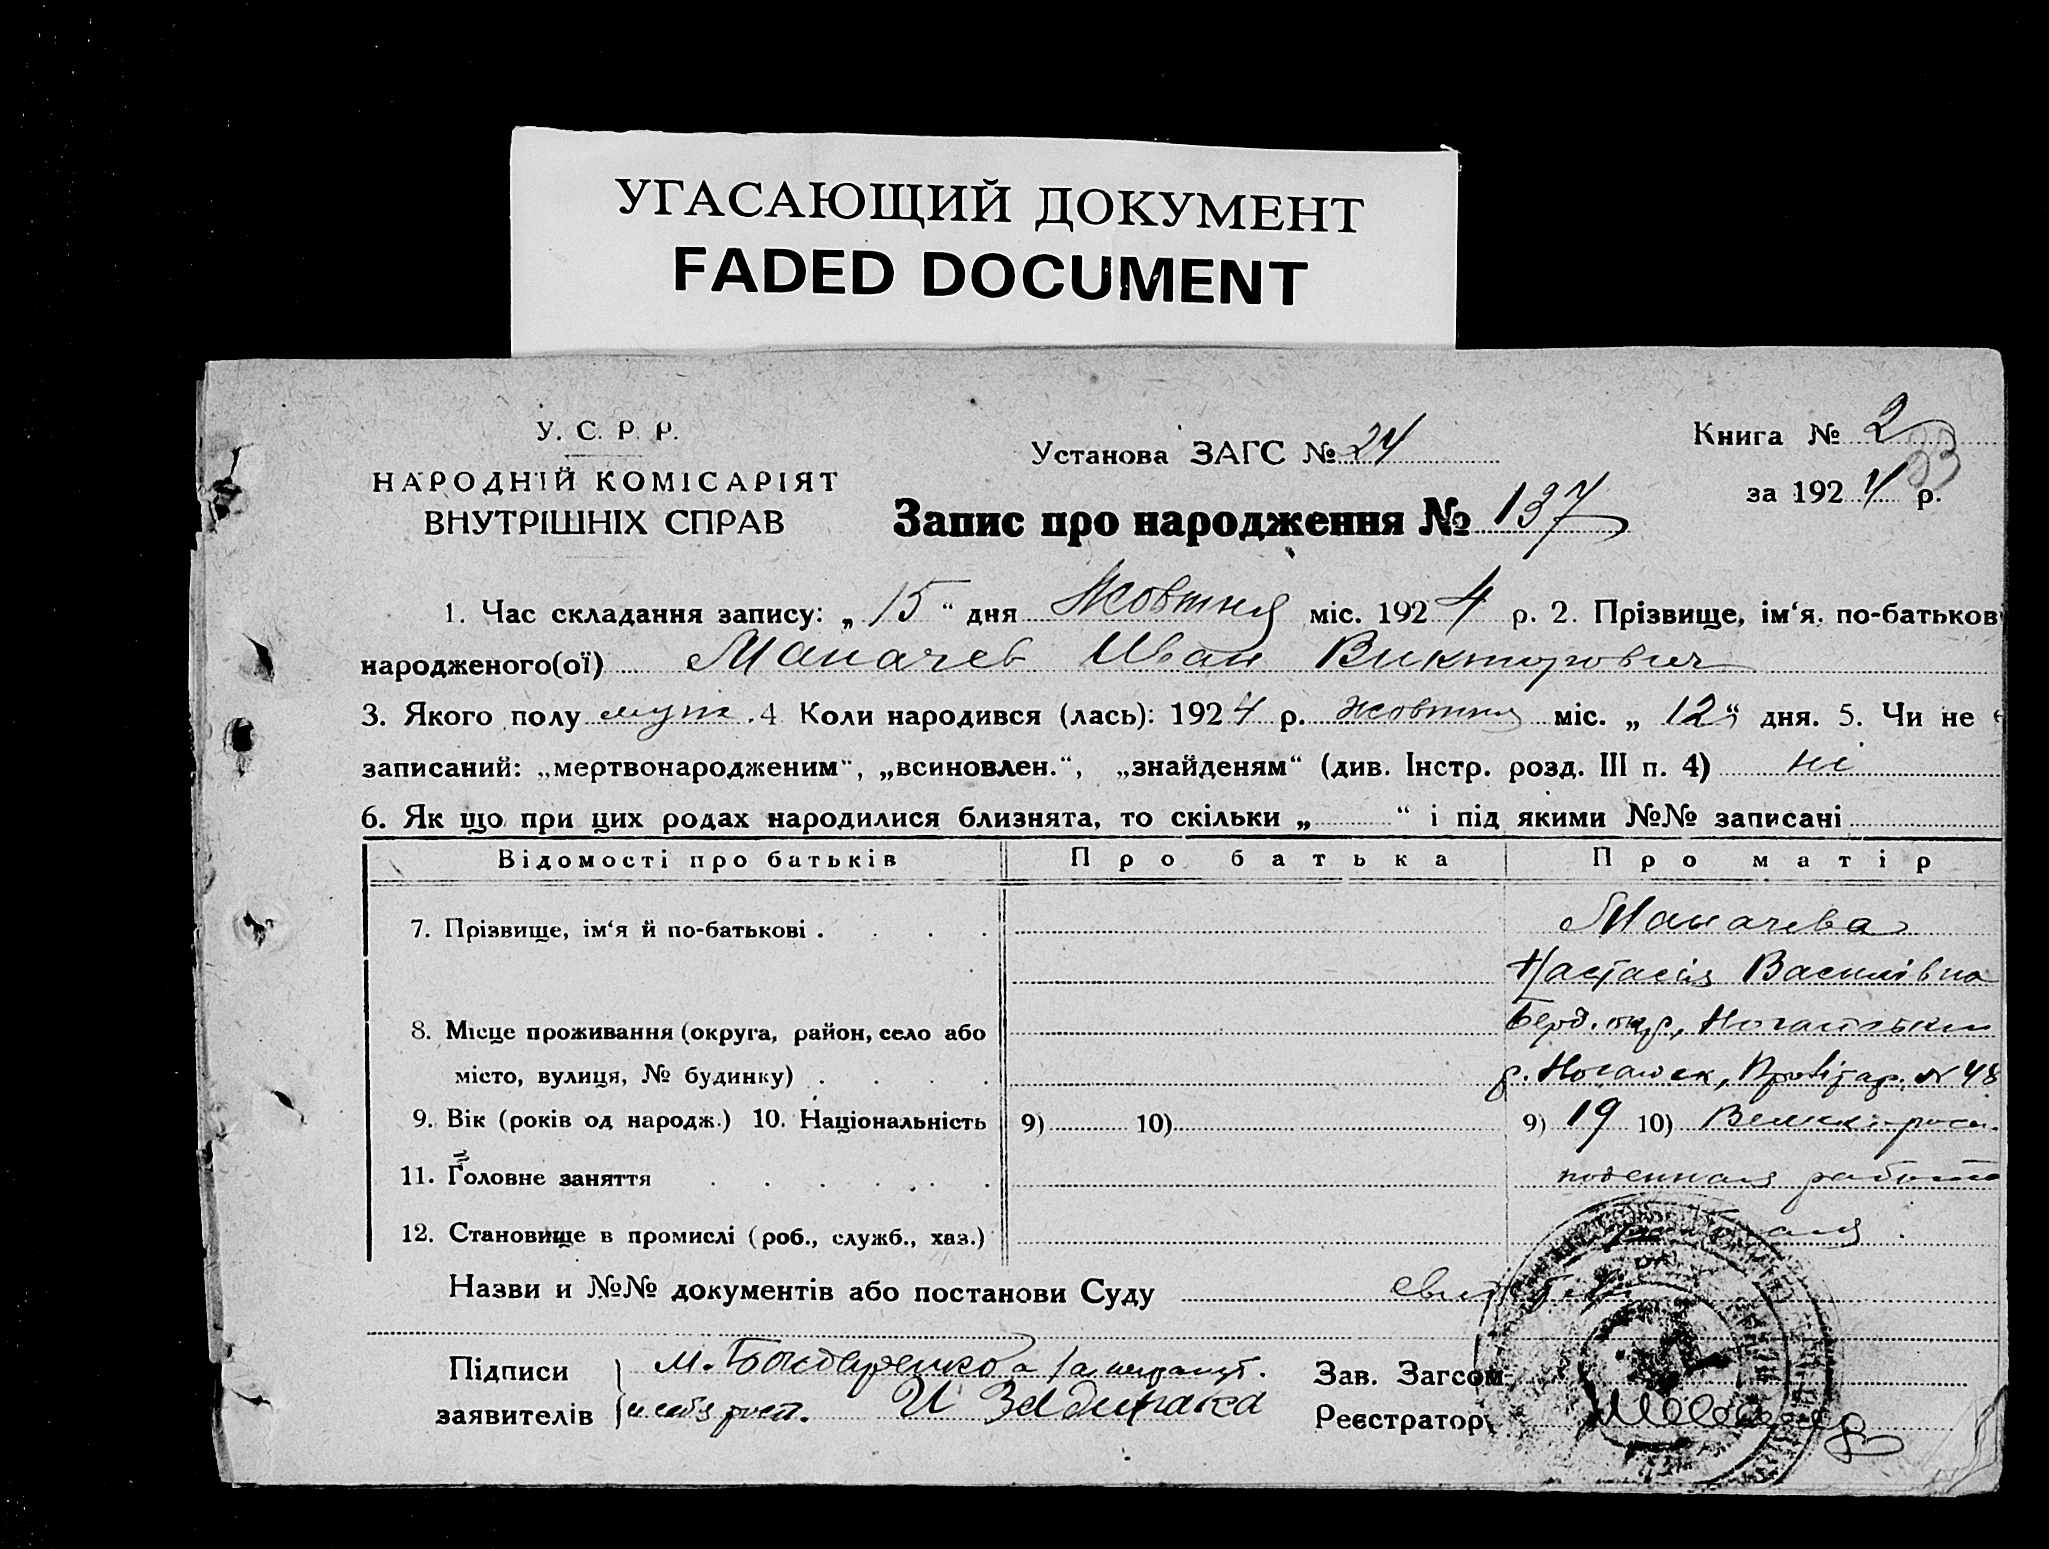 УГАСАЮЩИЙ ДОКУМЕНТ
FADED DOCUMENT
У. С. Р. Р.
НАРОДНІЙ КОМІСАРІЯТ
ВНУТРІШНІХ СПРАВ
Установа ЗАГС № 24
Книга № 2
за 1924 р.
Запис про народження № 137
1. Час складання запису: „ 15 “ дня Жовтня міс. 1924 р. 2. Прізвище, ім‘я, по-батьков
народженого(ої) Маначев Иван Викторович
3. Якого полу муж. 4 Коли народився (лась): 1924 р. жовтня міс. „ 12 “ дня. 5. Чи не
записаний: „мертвонародженим“, „всиновлен.“, „знайденям“ (див. Інстр. розд. III п. 4) ні
6. Як що при цих родах народилися близнята, то скільки „ “ і під якими №№ записані
Відомості про батьків Про батька Про матір
7. Прізвище, ім‘я й по-батькові . Маначева
Настасія Василівна
8. Місце проживання (округа, район, село або Берд. окр., Ногайськ
місто, вулиця, № будинку) р. Ногайск, № 48
9. Вік (років од народж.) 10. Національність 9) 10) 9) 19 10) Велико-росс.
11. Головне заняття поденная работа
12. Становище в промислі (роб., служб., хаз.)
Назви и №№ документів або постанови Суду
Підписи М. Бондаренко а Зав. Загсом
заявителів И Реєстратор